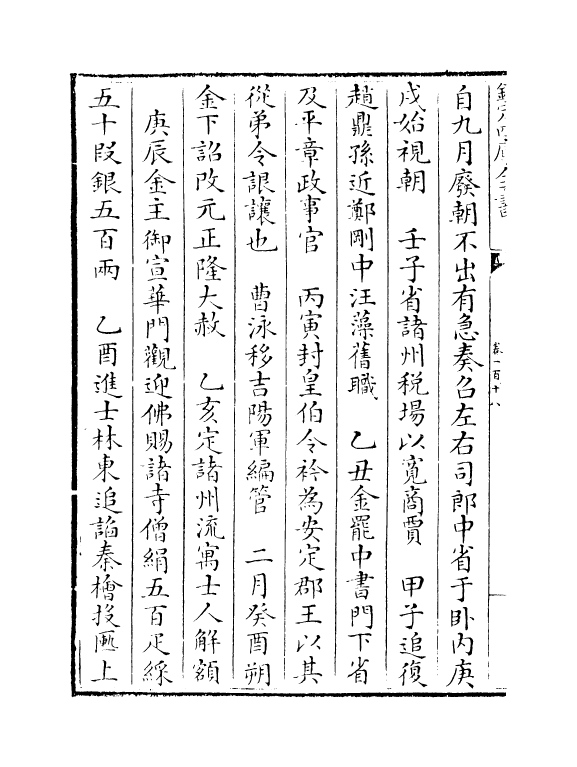 欽定四庫全書
卷一百十八
自九月廢朝不出有急奏召左右司郎中省于卧内庚
戌始視朝　壬子省諸州税場以寛商賈　甲子追復
趙鼎孫近鄭剛中汪藻舊職　乙丑金罷中書門下省
及平章政事官　丙寅封皇伯令衿為安定郡王以其
從弟令詪讓也　曹泳移吉陽軍編管　二月癸酉朔
金下詔改元正隆大赦　乙亥定諸州流寓士人解額
庚辰金主御宣華門觀迎佛賜諸寺僧絹五百疋綵
五十段銀五百兩　乙酉進士林東追諂秦檜投匭上